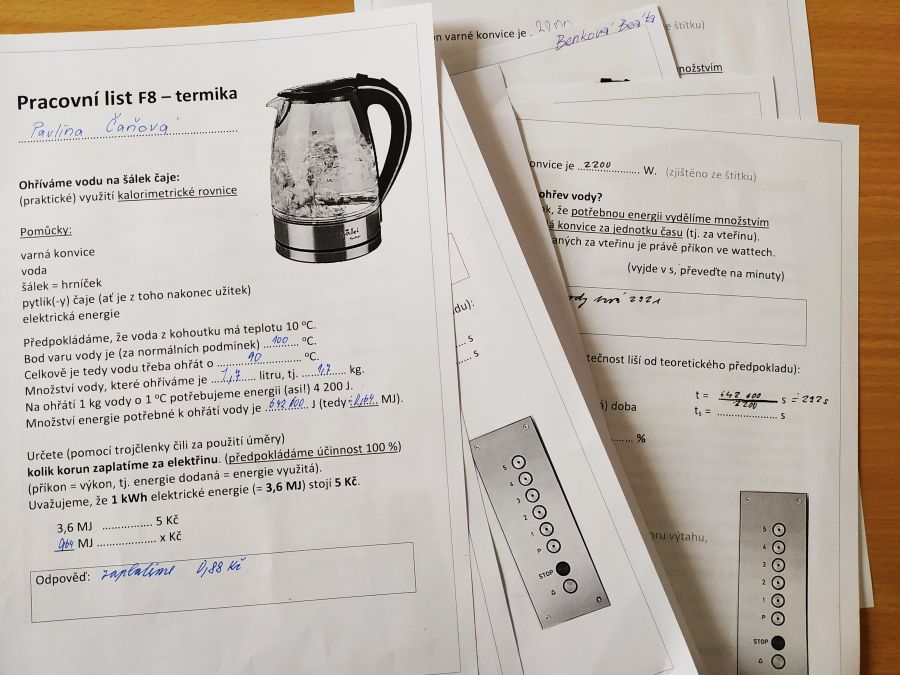 Pracovní list F8 – termika
Pavlína Čaňová
Ohříváme vodu na šálek čaje:
(praktické) využití kalorimetrické rovnice
Pomůcky:
varná konvice
voda
šálek = hrníček
pytlík(-y) čaje (ať je z toho nakonec užitek)
elektrická energie
Předpokládáme, že voda z kohoutku má teplotu 10 °C.
Bod varu vody je (za normálních podmínek) 100 °C.
Celkově je tedy vodu třeba ohřát o 90 °C.
Množství vody, které ohříváme je 1,7 litru, tj. 1,7 kg.
Na ohřátí 1 kg vody o 1 °C potřebujeme energii (asi!) 4 200 J.
Množství energie potřebné k ohřátí vody je 642 600 J (tedy = 0,64 MJ).
Určete (pomocí trojčlenky čili za použití úměry)
kolik korun zaplatíme za elektřinu. (předpokládáme účinnost 100 %)
(příkon = výkon, tj. energie dodaná = energie využitá).
Uvažujeme, že 1 kWh elektrické energie (= 3,6 MJ) stojí 5 Kč.
3,6 MJ ................ 5 Kč
0,64 MJ ................... x Kč
Odpověď: zaplatíme 0,88 Kč
on varné konvice je . 22
e štítku)
Benková Beáta
nožstvím
konvice je 2200 W. (zjištěno ze štítku)
ohřev vody?
k, že potřebnou energii vydělíme množstvím
á konvice za jednotku času (tj. za vteřinu).
aných za vteřinu je právě příkon ve wattech.
(vyjde v s, převeďte na minuty)
tečnost liší od teoretického předpokladu):
t = 642 600 / 2200 s = 292s
tₛ = ................... s
) doba
........ %
oru výtahu,
kladu):
s
s
5
4
3
2
1
P
STOP
5
4
3
2
1
P
STOP